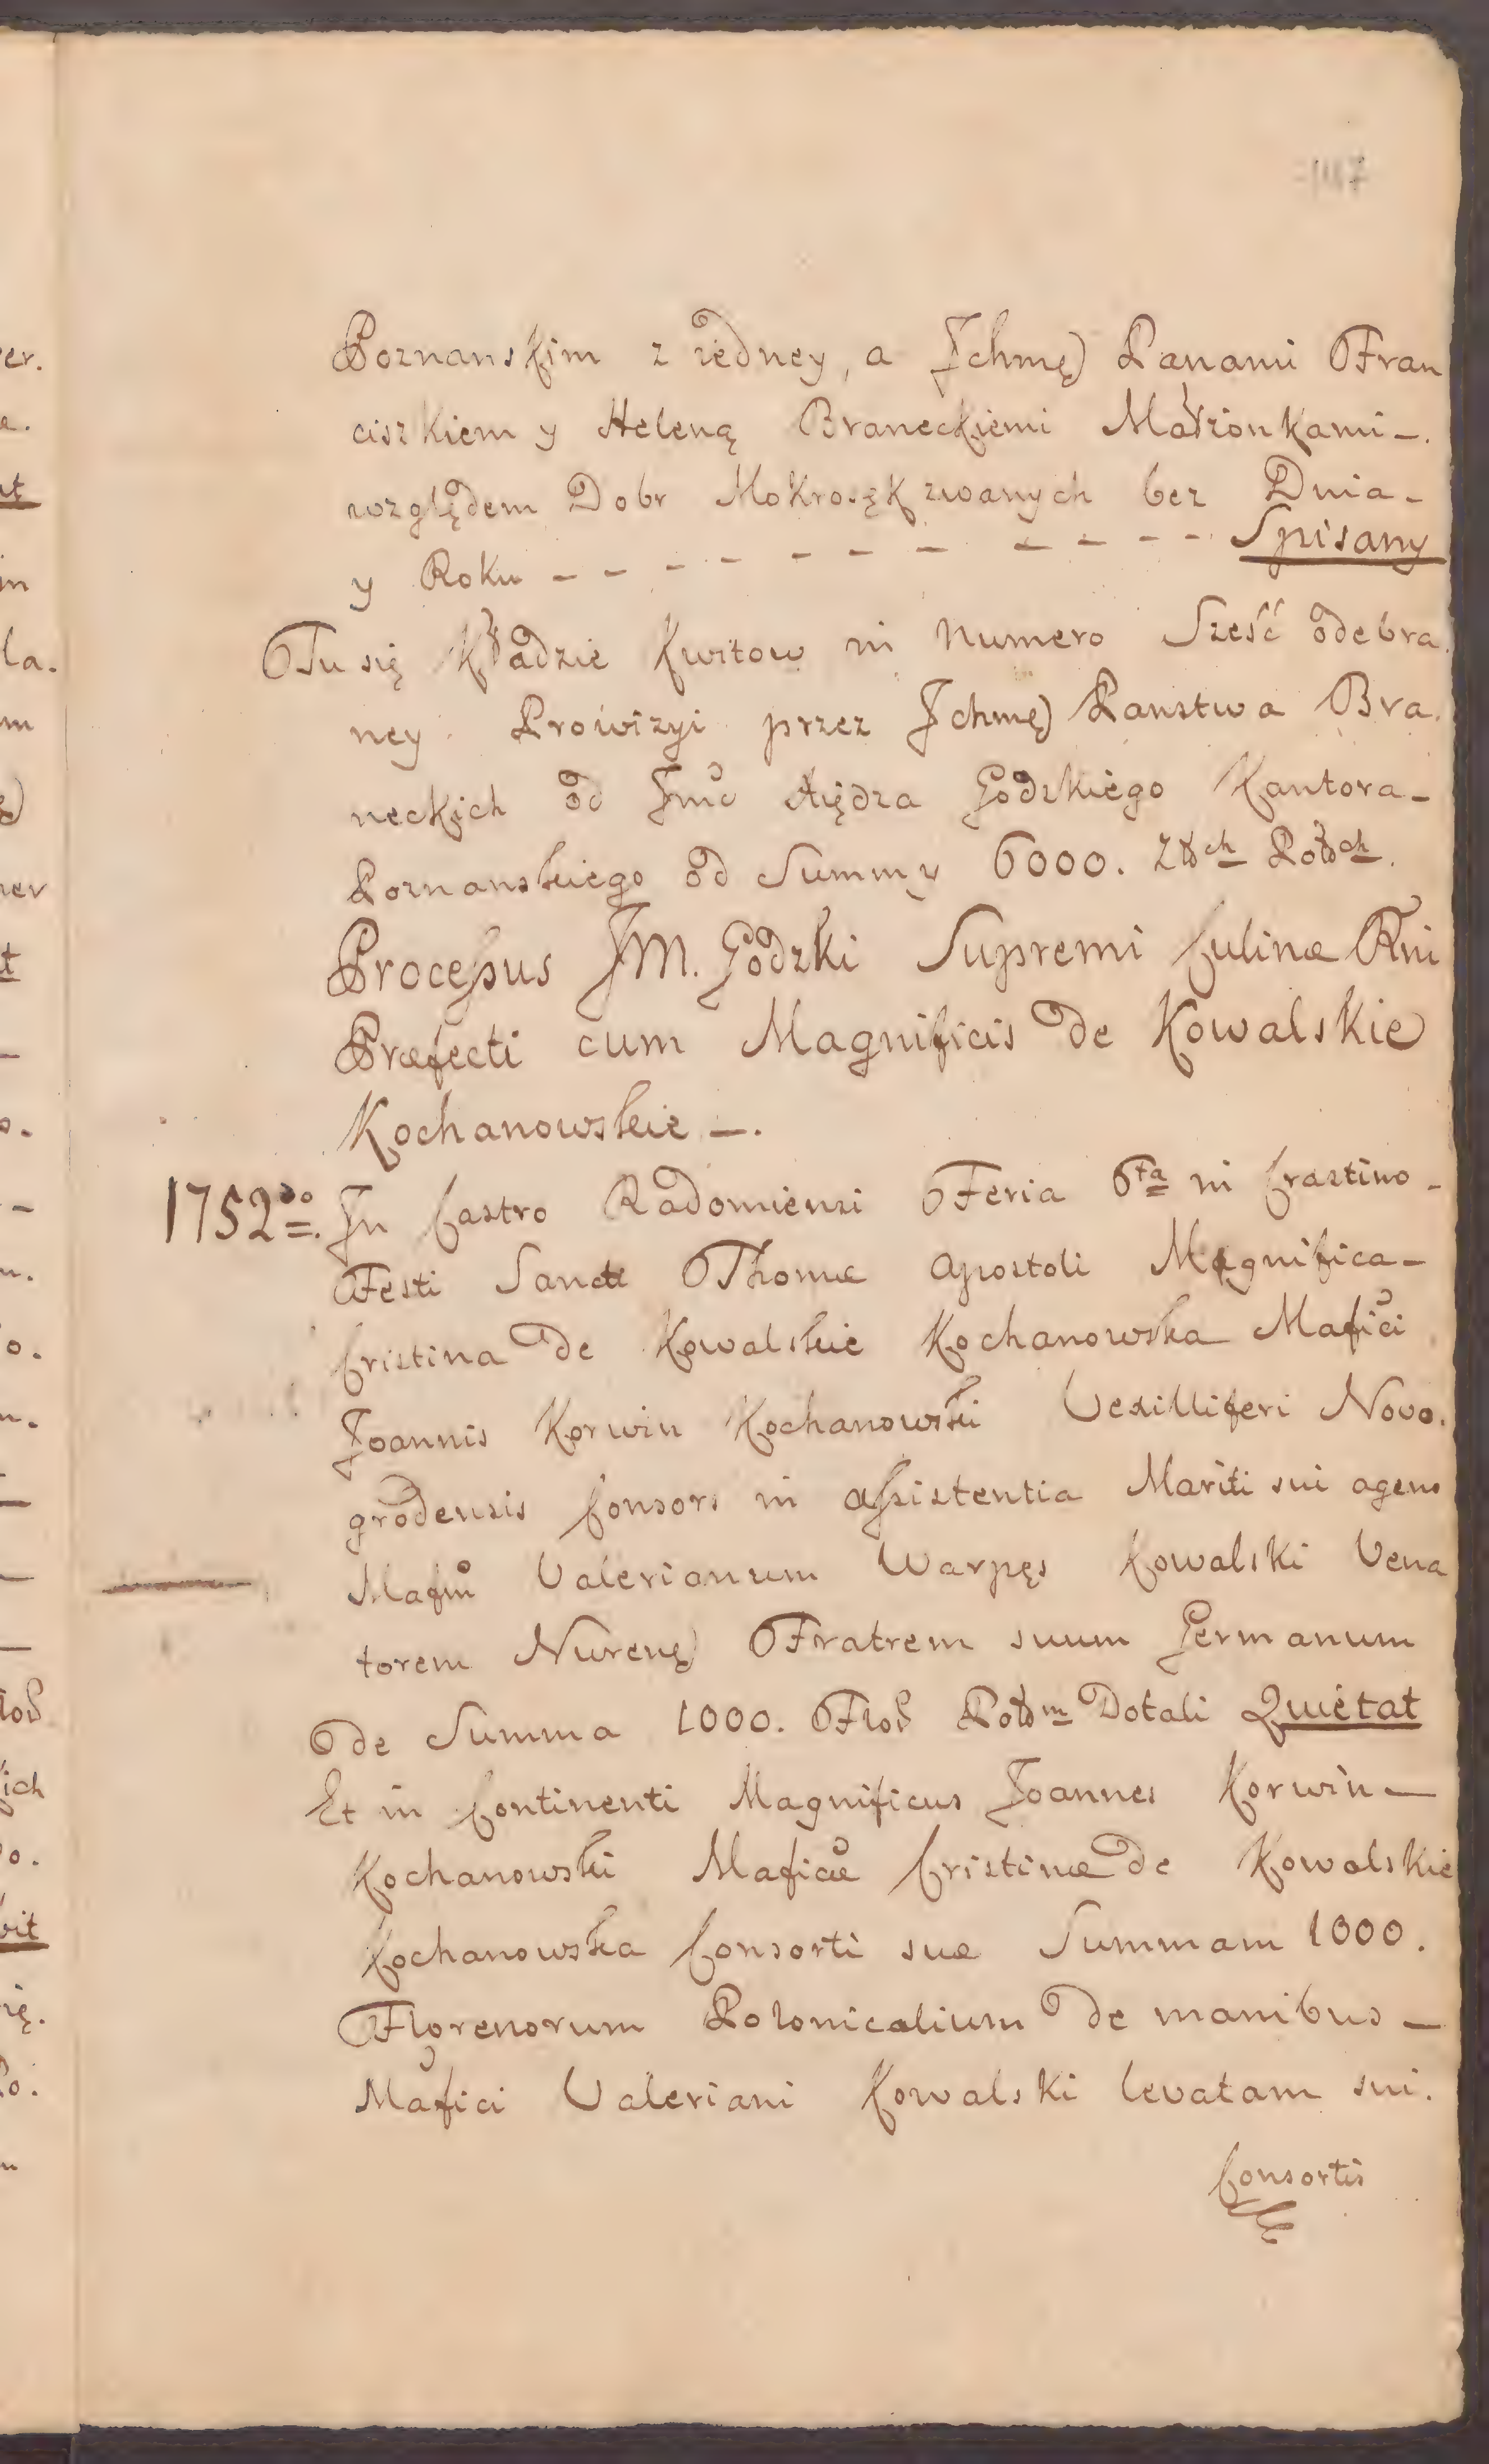 147
Poznanskim z iedney, a Ichmę) Panami Fran
ciszkiem y Heleną Braneckiemi Małżonkami -.
względem Dobr Mokrosęk zwanych bez Dnia -
y Roku - - - - - - - - - - - Spisany
Tu się Kładzie Kwitow in Numero Sześć odebra.
ney Prowizyi przez Ichmę) Panstwa Bra.
neckich od Jmć Xiędza Godzkiego Kantora -
Poznanskiego od Summy 6000. Złłch Polłch.
Processus JM. Godzki Supremi Culinæ Rni
Præfecti cum Magnificis de Kowalskie
Kochanowskie -.
1752do. In Castro Radomiensi Feria 6ta in Crastino -
Festi Sancti Thomæ Apostoli Magnifica -
Cristina de Kowalskie Kochanowska Mafici
Joannis Korwin Kochanowski Vexilliferi Novo.
grodensis Consors in assistentia Mariti sui agens
Mafm Valerianum Warpęs Kowalski Vena
torem Nurenę) Fratrem suum Germanum
de Summa 1000. Flor Pollm Dotali Quietat
Et in Continenti Magnificus Joannes Korwin -
Kochanowski Maficæ Cristinæ de Kowalskie
Kochanowska Consorti suæ Summam 1000.
Florenorum Polonicalium de manibus -
Mafici Valeriani Kowalski levatam sui.
Consortis